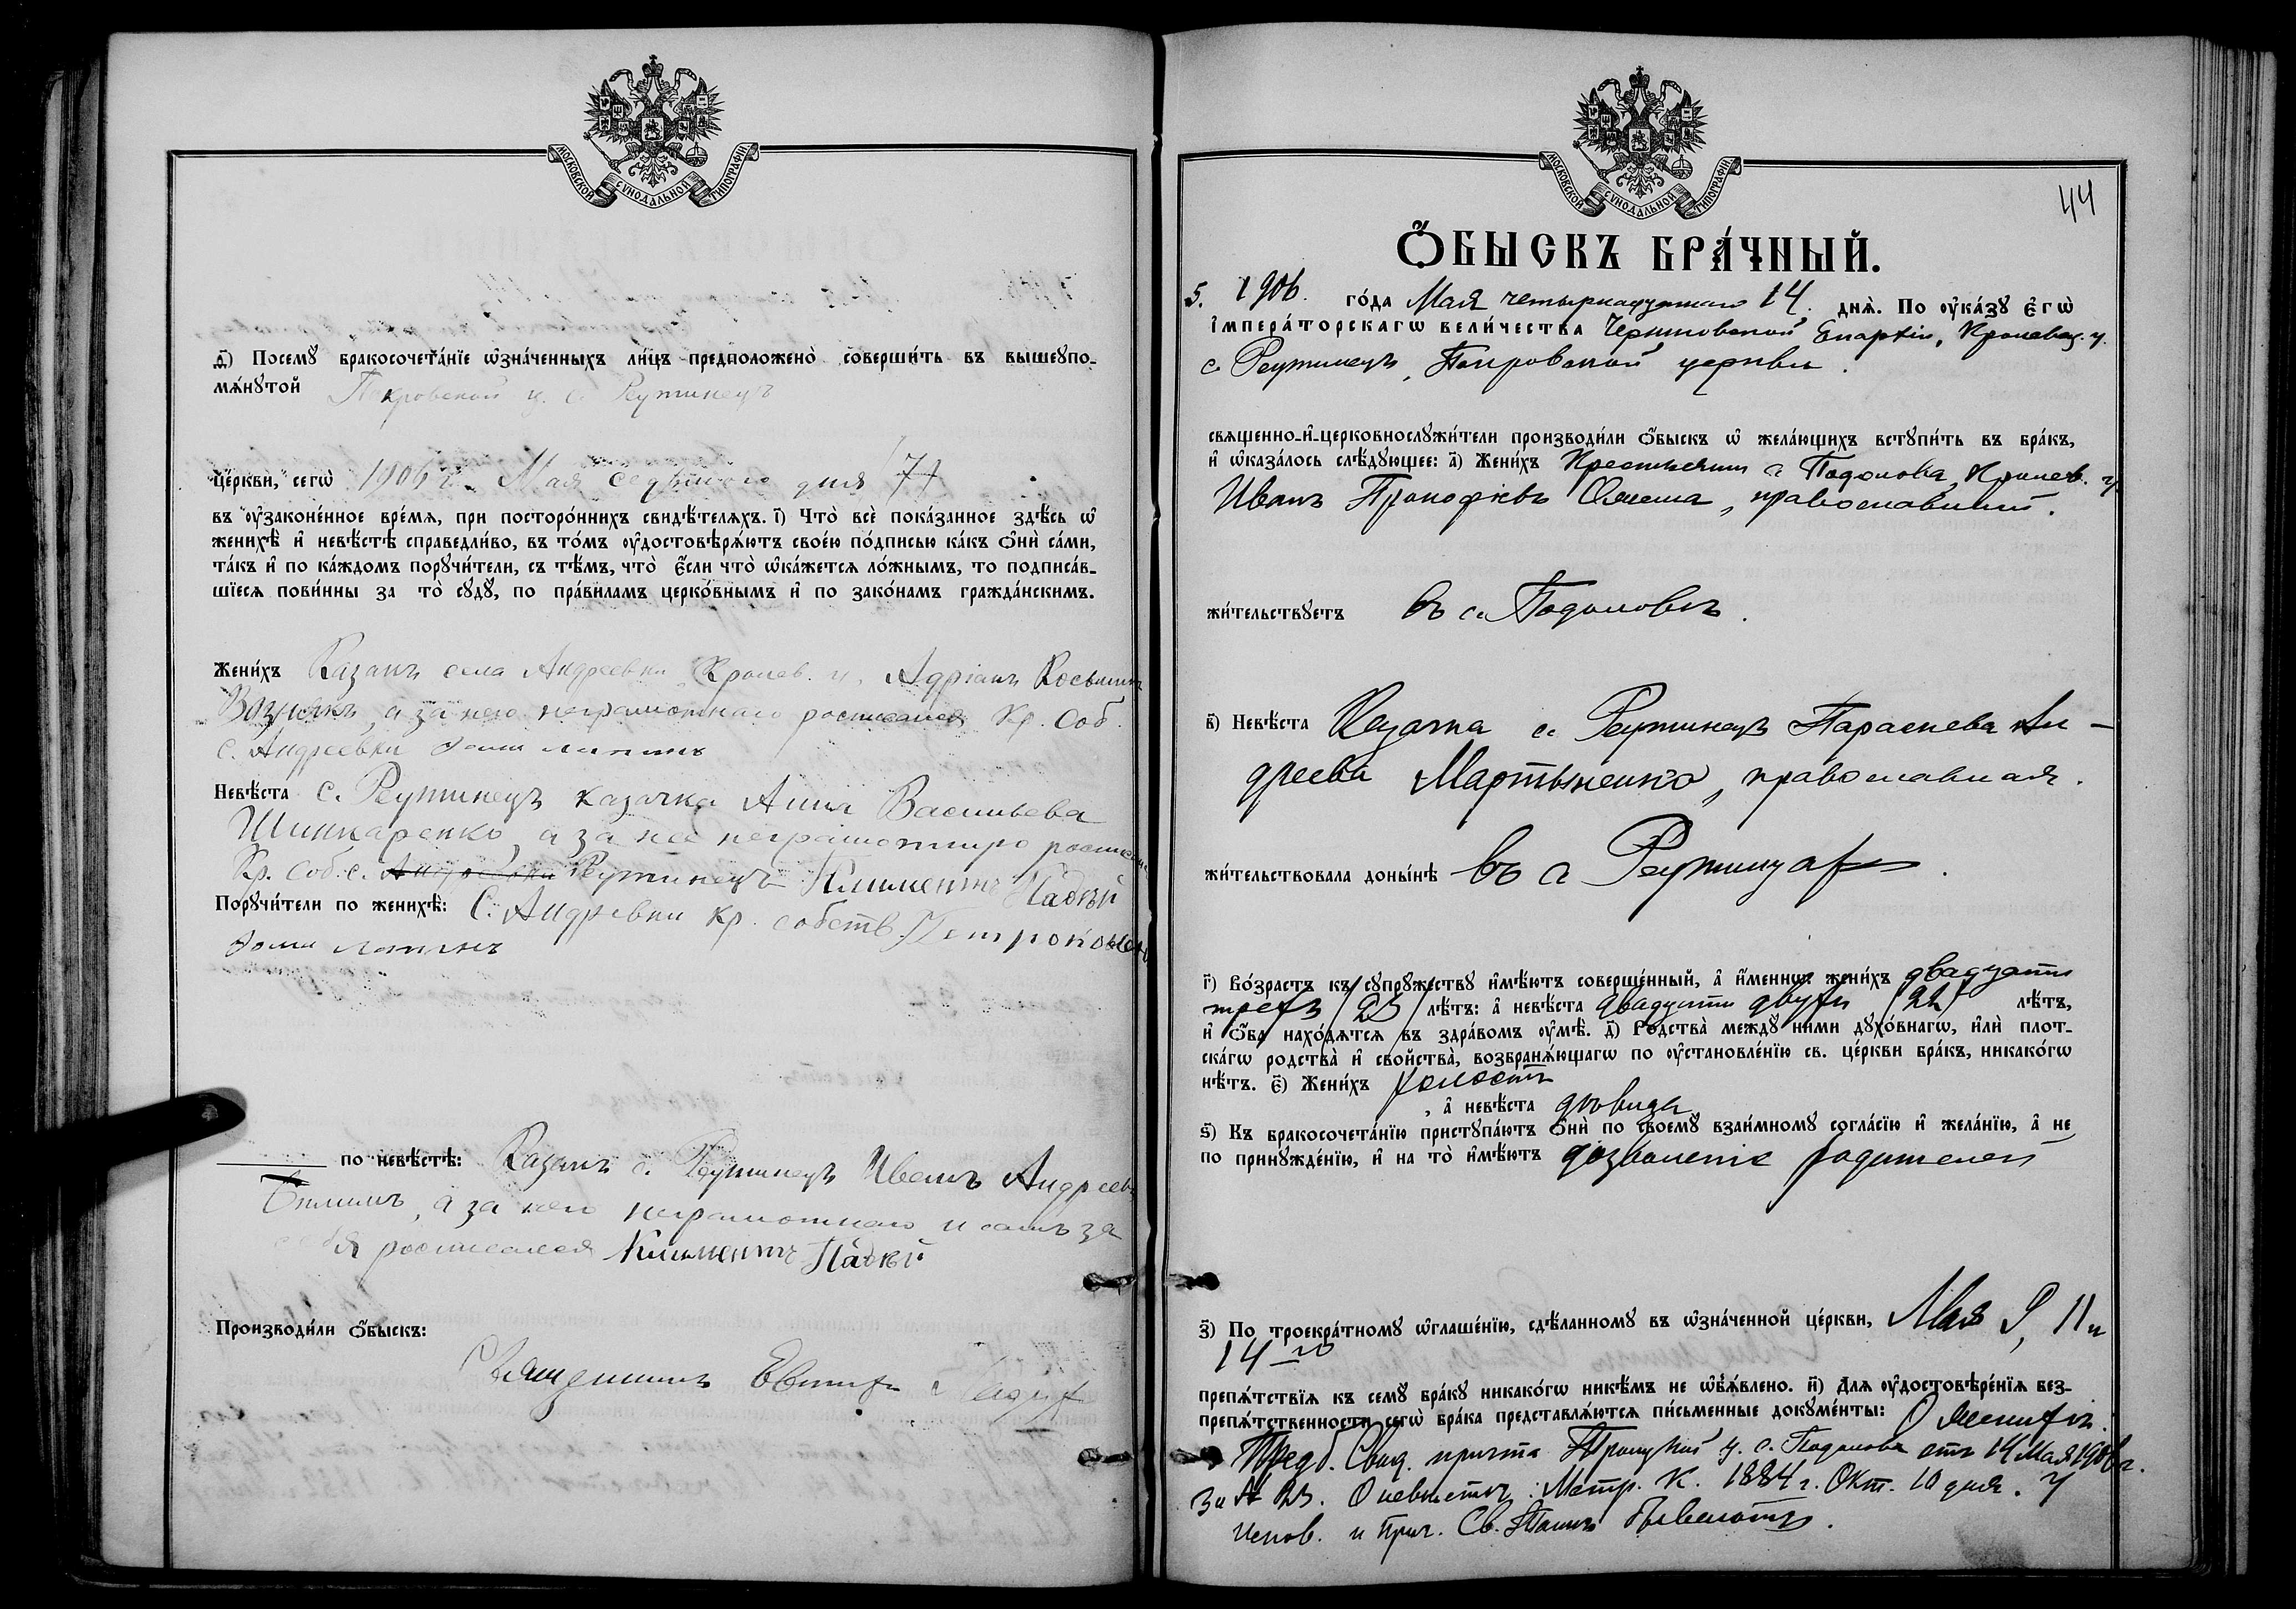 МОСКОВСКОЙ СѴНОДАЛЬНОЙ ТИПОГРАФІИ
д҃і) Посемꙋ̀ бракосочета́нїе ѡ҆зна́ченныхъ ли́цъ предположено̀ соверши́ть въ вышеупо-
мѧ́нꙋтой Покровской ц. с. Реутинецъ
це́ркви, сегѡ̀ 1906 г. Мая седьмого дня 7
въ ᲂу҆законе́нное вре́мѧ, при посторо́ннихъ свидѣ́телѧхъ. і҃) Что̀ всѐ пока́занное здѣ́сь ѡ҆
женихѣ̀ и҆ невѣ́стѣ справедли́во, въ то́мъ ᲂу҆достовѣрѧ́ютъ свое́ю по́дписью ка́къ ѻ҆нѝ са́ми,
та́къ и҆ по ка́ждомъ порꙋчи́тели, съ тѣ́мъ, что̀ є҆́сли что̀ ѡ҆ка́жетсѧ ло́жнымъ, то подписа́в-
шїесѧ пови́нны за то̀ сꙋдꙋ̀, по пра́виламъ церко́внымъ и҆ по зако́намъ гражда́нскимъ.
Жени́хъ Казакъ села Андреевки Кролев. у. Адріанъ Косьминъ
Вознякъ, а за него неграмотнаго росписался Кр. Соб.
с. Андреевки
Невѣ́ста с. Реутинецъ казачка Анна Васильева
Шинкаренко, а за нее неграмотную росписался
Кр. Соб. с. Андреевки Реутинецъ Климентъ Гладкій
Порꙋчи́тели по женихѣ̀: С. Андревки кр. собств.
по невѣ́стѣ: Казакъ с. Реутинецъ Иванъ Андреевъ
а за него неграмотнаго и самъ за
себя росписался Климентъ Гладкій
Производи́ли ѻ҆́быскъ:
Священникъ Евтихій
МОСКОВСКОЙ СѴНОДАЛЬНОЙ ТИПОГРАФІИ
44
Ѻ҆́БЫСКЪ БРА́ЧНЫЙ.
5. 1906. го́да Мая четырнадцатаго 14. днѧ̀. По ᲂу҆ка́зꙋ є҆гѡ̀
і҆мпера́торскагѡ вели́чества Черниговской Епархіи, Кролевец. у.
с. Реутинецъ, Покровской церкви.
свѧщенно-и҆-церковнослꙋжи́тели производи́ли ѻ҆́быскъ ѡ҆ жела́ющихъ встꙋпи́ть въ бра́къ,
и҆ ѡ҆каза́лось слѣ́дꙋющее: а҃) Жени́хъ Крестьянинъ с. Подолова, Кролев. у.
Иванъ Прокофіевъ православный.
жи́тельствꙋетъ въ с. Подоловѣ.
в҃) Невѣ́ста Казачка с. Реутинецъ Параскева Ан-
дреева Мартыненко, православная.
жи́тельствовала доны́нѣ въ с. Реутинцахъ.
г҃) Во́зрастъ къ сꙋпрꙋ́жествꙋ и҆мѣ́ютъ соверше́нный, а҆ и҆́меннѡ: жени́хъ двадцати
трехъ /23/ лѣ́тъ: а҆ невѣ́ста двадцати двухъ /22/ лѣ́тъ,
и҆ ѻ҆́ба нахо́дѧтсѧ въ здра́вомъ ᲂу҆мѣ̀. д҃) Родства̀ междꙋ̀ ни́ми дꙋхо́внагѡ, и҆лѝ плот-
ска́гѡ родства̀ и҆ сво́йства, возбранѧ́ющагѡ по ᲂу҆становле́нїю св. це́ркви бра́къ, никако́гѡ
нѣ́тъ. є҃) Жени́хъ холостъ
, а҆ невѣ́ста дѣвица
ѕ҃) Къ бракосочета́нїю пристꙋпа́ютъ ѻ҆нѝ по своемꙋ̀ взаи́мномꙋ согла́сїю и҆ жела́нїю, а҆ не
по принꙋжде́нїю, и҆ на то̀ и҆мѣ́ютъ дозволеніе родителей
з҃) По троекра́тномꙋ ѡ҆глаше́нїю, сдѣ́ланномꙋ въ ѡ҆зна́ченной це́ркви, Мая 9, 11 и
14 го
препѧ́тствїѧ къ семꙋ̀ бра́кꙋ никако́гѡ никѣ́мъ не ѡ҆б̾ѧ́влено. и҃) Длѧ ᲂу҆достовѣре́нїѧ без-
препѧ́тственности сегѡ̀ бра́ка представлѧ́ютсѧ пи́сьменные докꙋме́нты: О женихѣ:
Предб. Свид. причта Троицкой ц. с. Подолова отъ 14 Мая 1906 г.
за № 23. О невѣстѣ: Метр. К. 1884 г. Окт. 10 дня. У
испов. и прич. Св. Таинъ бываютъ.